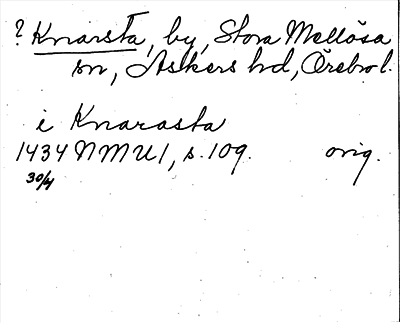 ? Knarsta, by, Stora Mellösa
sn, Askers hd, Örebro l.
i Knarasta
1434 NMU1, s. 109. orig.
30/4